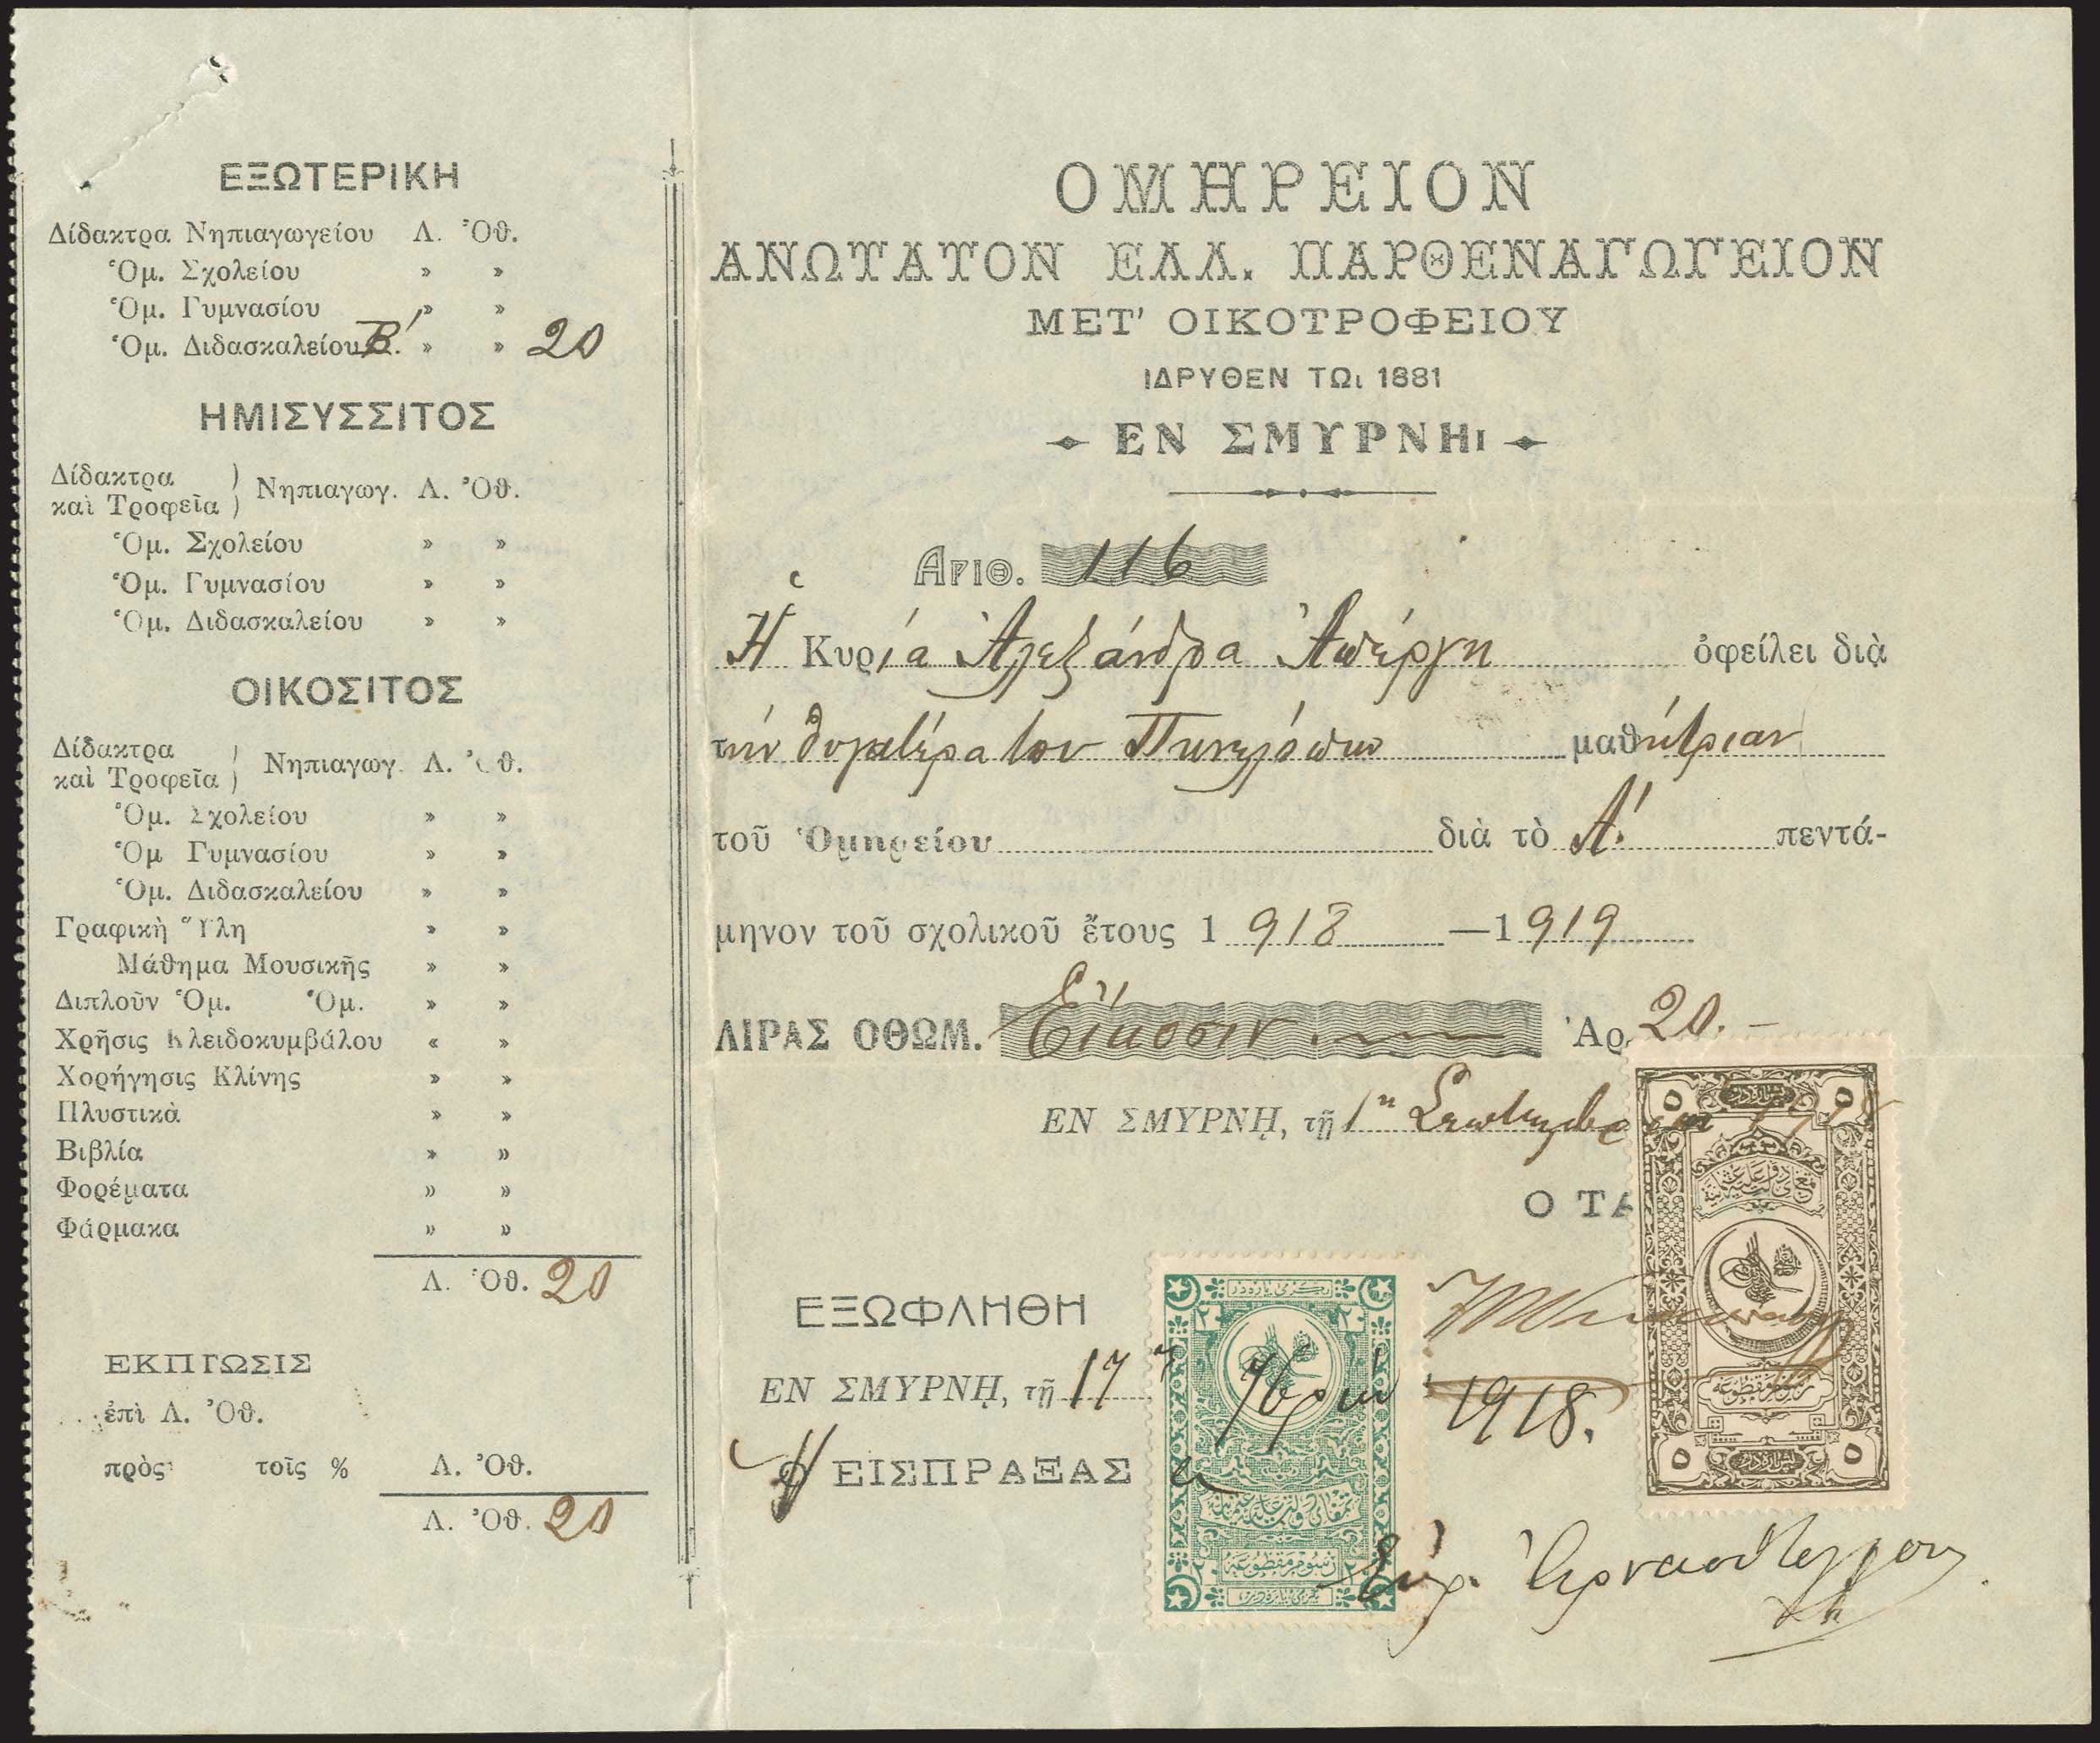 ΕΞΩΤΕΡΙΚΗ
Δίδακτρα Νηπιαγωγείου Λ. Ὀθ.
Ὁμ. Σχολείου » »
Ὁμ. Γυμνασίου » »
Ὁμ. Διδασκαλείου Β΄. » » 20
ΗΜΙΣΥΣΣΙΤΟΣ
Δίδακτρα
καὶ Τροφεῖα ) Νηπιαγωγ. Λ. Ὀθ.
Ὁμ. Σχολείου » »
Ὁμ. Γυμνασίου » »
Ὁμ. Διδασκαλείου » »
ΟΙΚΟΣΙΤΟΣ
Δίδακτρα
καὶ Τροφεῖα ) Νηπιαγωγ. Λ. Ὀθ.
Ὁμ. Σχολείου » »
Ὁμ Γυμνασίου » »
Ὁμ. Διδασκαλείου » »
Γραφικὴ Ὕλη » »
Μάθημα Μουσικῆς » »
Διπλοῦν Ὁμ. Ὁμ. » »
Χρῆσις Κλειδοκυμβάλου « »
Χορήγησις Κλίνης » »
Πλυστικὰ » »
Βιβλία » »
Φορέματα » »
Φάρμακα » »
Λ. Ὀθ. 20
ΕΚΠΤΩΣΙΣ
ἐπὶ Λ. Ὀθ.
πρὸς τοῖς % Λ. Ὀθ.
Λ. Ὀθ. 20
ΟΜΗΡΕΙΟΝ
ΑΝΩΤΑΤΟΝ ΕΛΛ. ΠΑΡΘΕΝΑΓΩΓΕΙΟΝ
ΜΕΤ' ΟΙΚΟΤΡΟΦΕΙΟΥ
ΙΔΡΥΘΕΝ ΤΩι 1881
ΕΝ ΣΜΥΡΝΗι
ΑΡΙΘ. 116
Ἡ Κυρία Ἀλεξάνδρα Ἀπέργη ὀφείλει διὰ
τὴν θυγατέρα των Πηνελόπην μαθήτριαν
τοῦ Ὁμηρείου διὰ τὸ Α΄. πεντά-
μηνον τοῦ σχολικοῦ ἔτους 1918 —1919
ΛΙΡΑΣ ΟΘΩΜ. Εἴκοσιν. Ἀρ. 20.-
ΕΝ ΣΜΥΡΝῌ, τῇ 1ῃ Σεπτεμβρίου 1918
Ο ΤΑ
ΕΞΩΦΛΗΘΗ
ΕΝ ΣΜΥΡΝῌ, τῇ 17 7βρίου 1918.
Ἡ ΕΙΣΠΡΑΞΑΣ